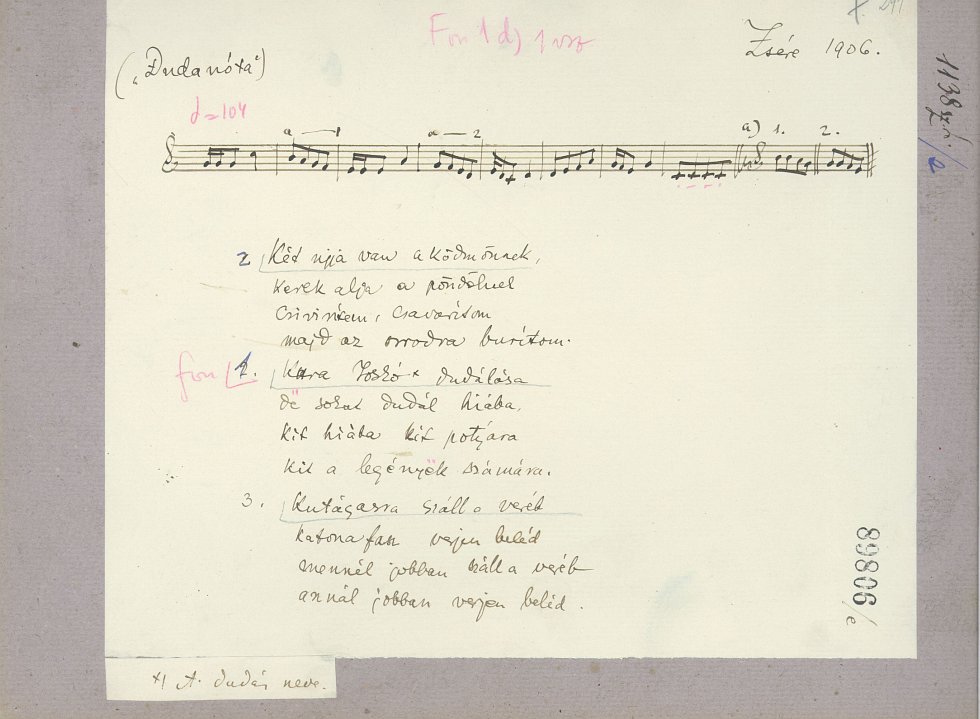 Fon 1 d) 1 vsz
Zsére 1906.
(„Dudanóta")
♩=104
a — 1
a — 2
a) 1.
2.
1138
2 Két ujja van a ködmönnek,
kerek alja a pöndölnek
Csivirítem, csavarítom
majd az orrodra burítom.
fon 1. Kara Joskó × dudálása
dë sokat dudál hiába,
kit hiába kit potyára
kit a legényëk számára.
3. Kutágasra száll a veréb
Katonafasz verjen beléd
mennél jobban száll a veréb
annál jobban verjen beléd.
89806/e
×) A dudás neve.